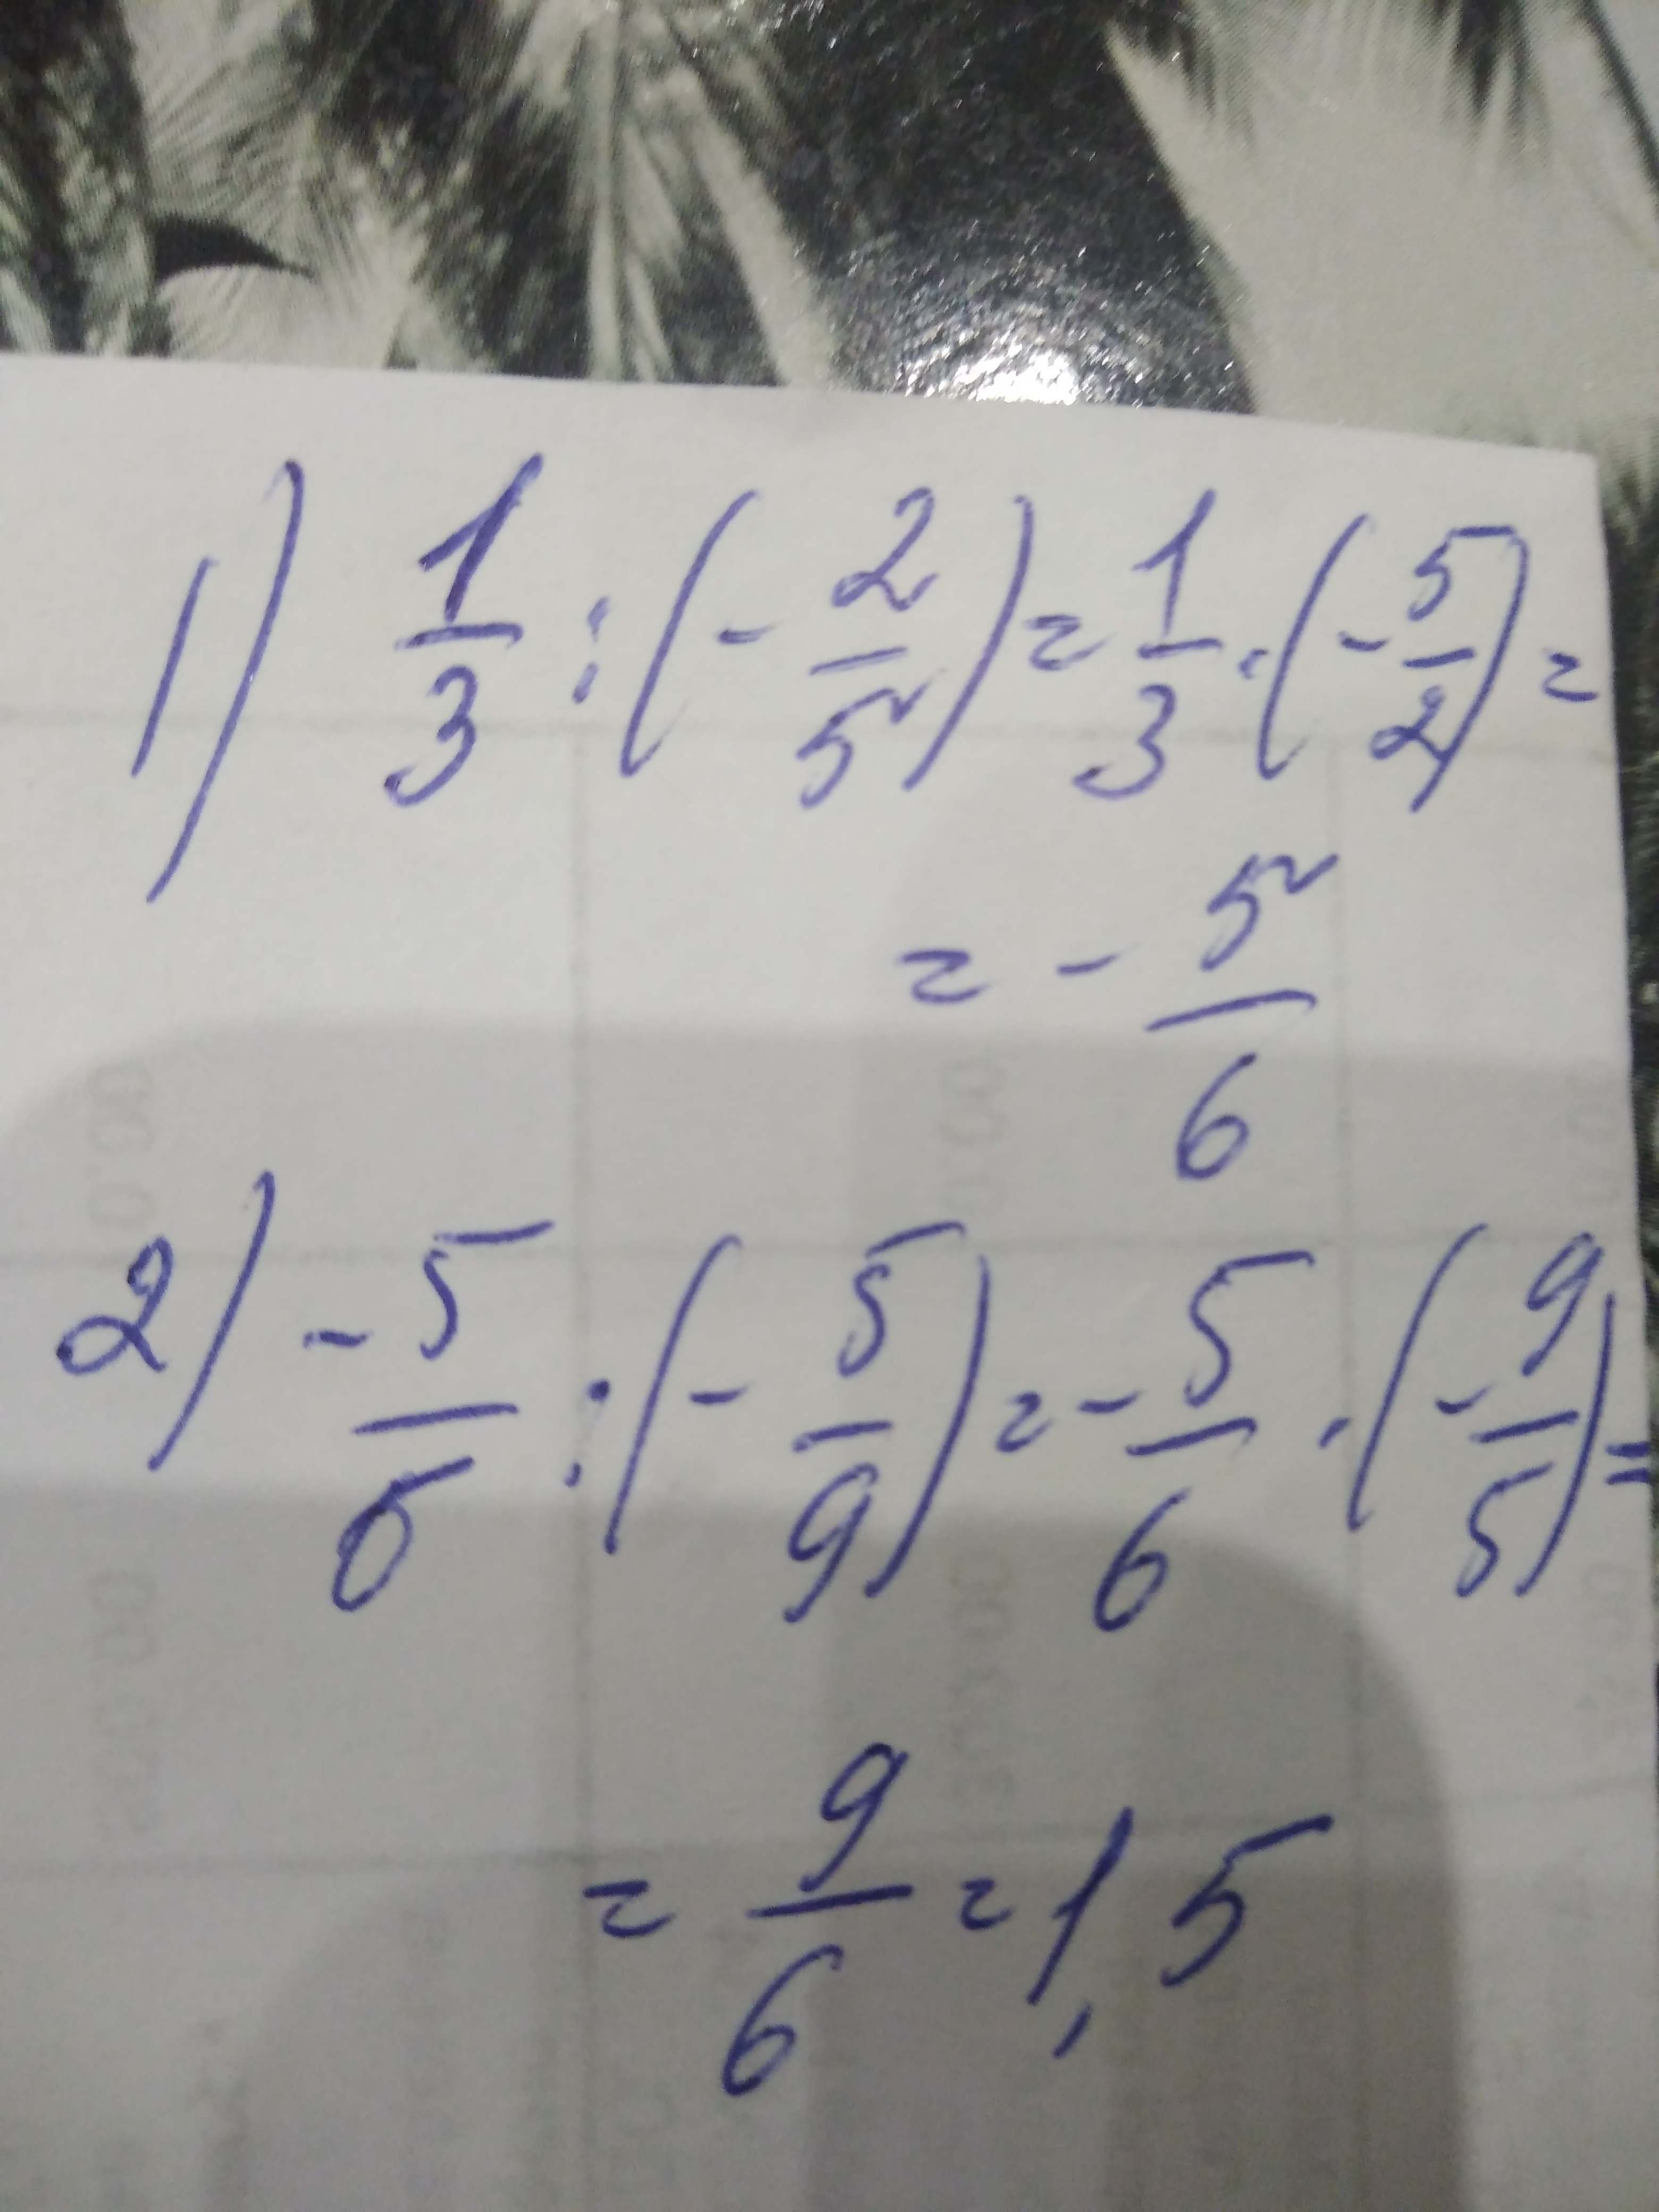 1) 1/3 : (- 2/5) = 1/3 · (- 5/2) =
= - 5/6
2) - 5/6 : (- 5/9) = - 5/6 · (- 9/5) =
= 9/6 = 1,5